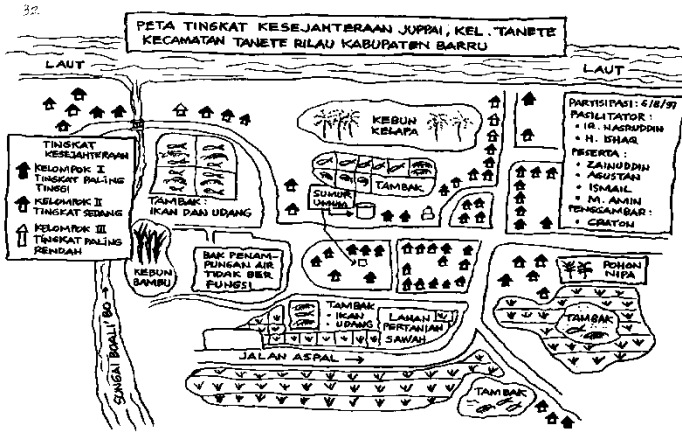 32
PETA TINGKAT KESEJAHTERAAN JUPPAI, KEL. TANETE
KECAMATAN TANETE RILAU KABUPATEN BARRU
LAUT
LAUT
TINGKAT
KESEJAHTERAAN
KELOMPOK I
TINGKAT PALING
TINGGI
KELOMPOK II
TINGKAT SEDANG
KELOMPOK III
TINGKAT PALING
RENDAH
KEBUN
KELAPA
PARTISIPASI: 6/8/97
PASILITATOR:
• IR. NASRUDDIN
• H. ISHAQ
PESERTA:
• ZAINUDDIN
• AGUSTAN
• ISMAIL
• M. AMIN
PENGGAMBAR:
• CRATON
TAMBAK:
IKAN DAN UDANG
TAMBAK
SUMUR
UMUM
KEBUN
BAMBU
BAK PENAM-
PUNGAN AIR
TIDAK BER
FUNGSI
POHON
NIPA
TAMBAK
TAMBAK
• IKAN
• UDANG
LAHAN
PERTANIAH
SAWAH
JALAN ASPAL
SUNGAI BOALI BO
TAMBAK